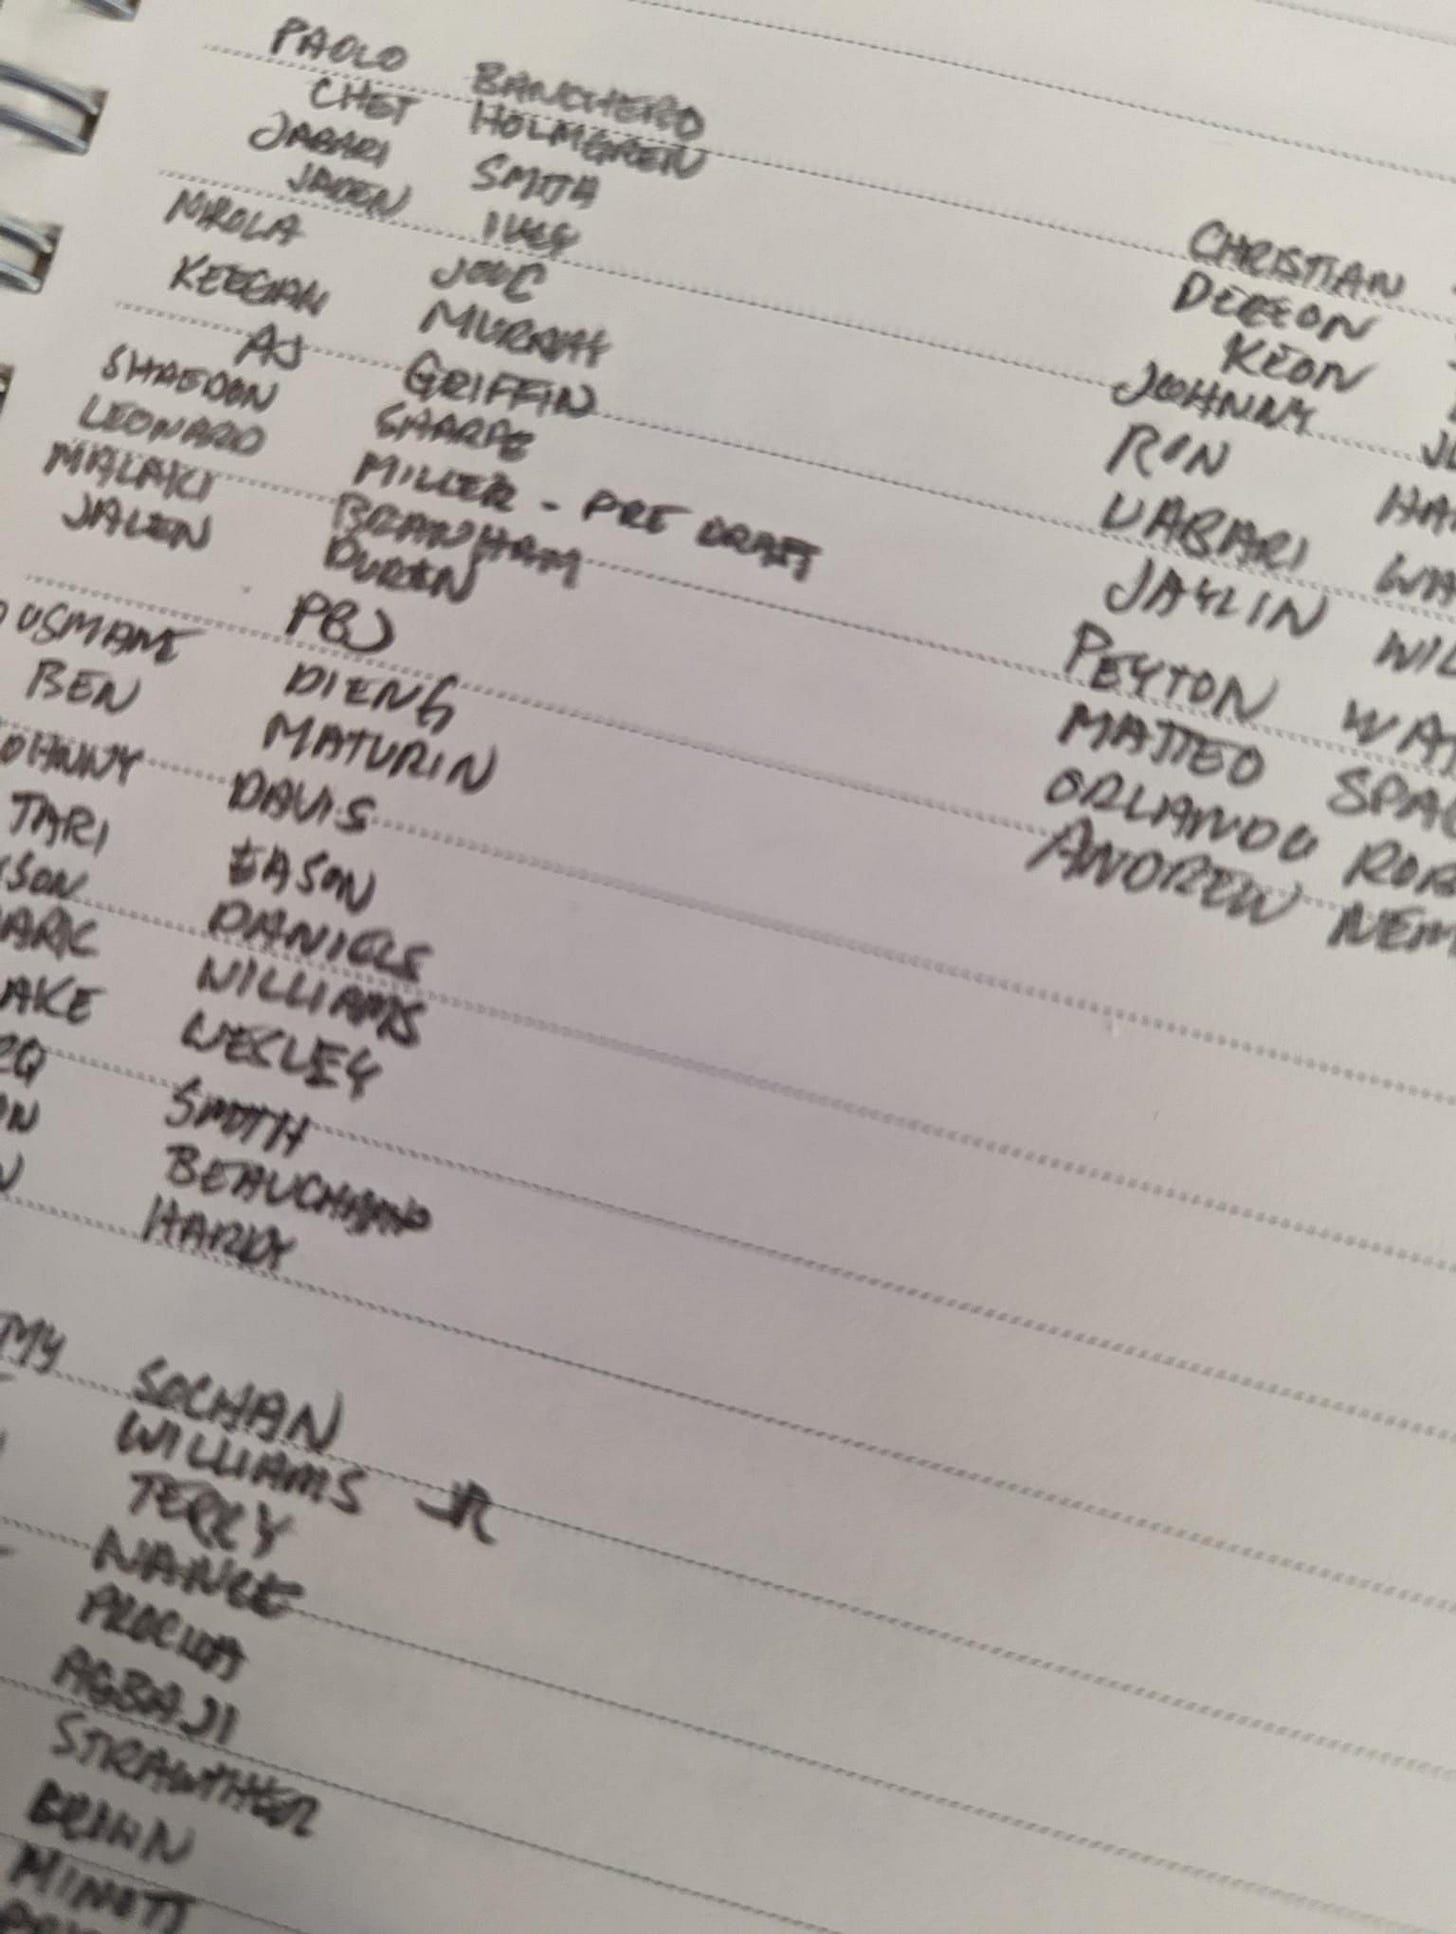 PAOLO BANCHERO
CHET HOLMGREN
JABARI SMITH
JADEN IVEY
NIKOLA JOVIC
KEEGAN MURRAY
AJ GRIFFIN
SHAEDON SHARPE
LEONARD MILLER - PRE DRAFT
MALAKI BRANHAM
JALEN DUREN
PBJ
OUSMANE DIENG
BEN MATURIN
JOHNNY DAVIS
TARI EASON
SON DANIELS
ARK WILLIAMS
AKE WESLEY
RQ
ON SMITH
N BEAUCHAMP
HARDY
MY SOCHAN
WILLIAMS JR
TERRY
NANCE
PROCIDA
AGBAJI
STRAWTHER
BROWN
MINOTT
CHRISTIAN
DEREON
KEON
JOHNNY JU
RON HA
JABARI WA
JAYLIN WIL
PEYTON WAT
MATTEO SPAG
ORLANDO ROB
ANDREW NEM